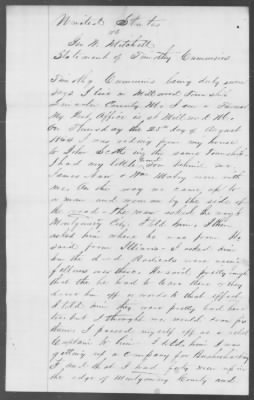 United States
vs
Geo W. Mitchell
Statement of Timothy Cummins
Timothy Cummins being duly sworn
says I live in Millwood Township
Lincoln County Mo. I am a Farmer
My Post Office is at Millwood Mo.
On Thursday the 25th day of August
1864 I was riding from my house
to John Scotts in the same township
I had my little behind me
James and Wm Mabry were with
me. On the way we came up to
a man and woman by the side of
the road. The man asked the way to
Montgomery City. I told him. I then
asked him where he was from. He
said from Illinois. I asked him
how the d--d Radicals were
fellows over there. He said pretty rough
that he had to leave there & they
drove him off or words to that effect.
I told him they were pretty bad here
too but I thought we would soon
them. I passed myself off as a rebel
Captain to him. I told him I was
getting up a company for bushwhacking
& Just that I had forty men up in
the edge of Montgomery County and